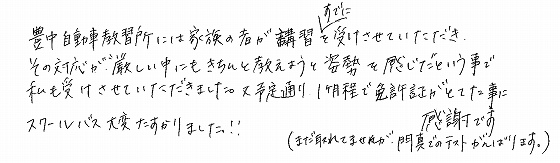 すでに
豊中自動車教習所には家族の者が講習を受けさせていただき.
その対応が厳しい中にもきちんと教えようと姿勢を感じたという事で
私も受けさせていただきました。又予定通り1ヶ月程で免許証がとれた事に
スクールバス大変たすかりました!! 感謝です
(まだ取れてませんが、門真でのテストがんばります。)